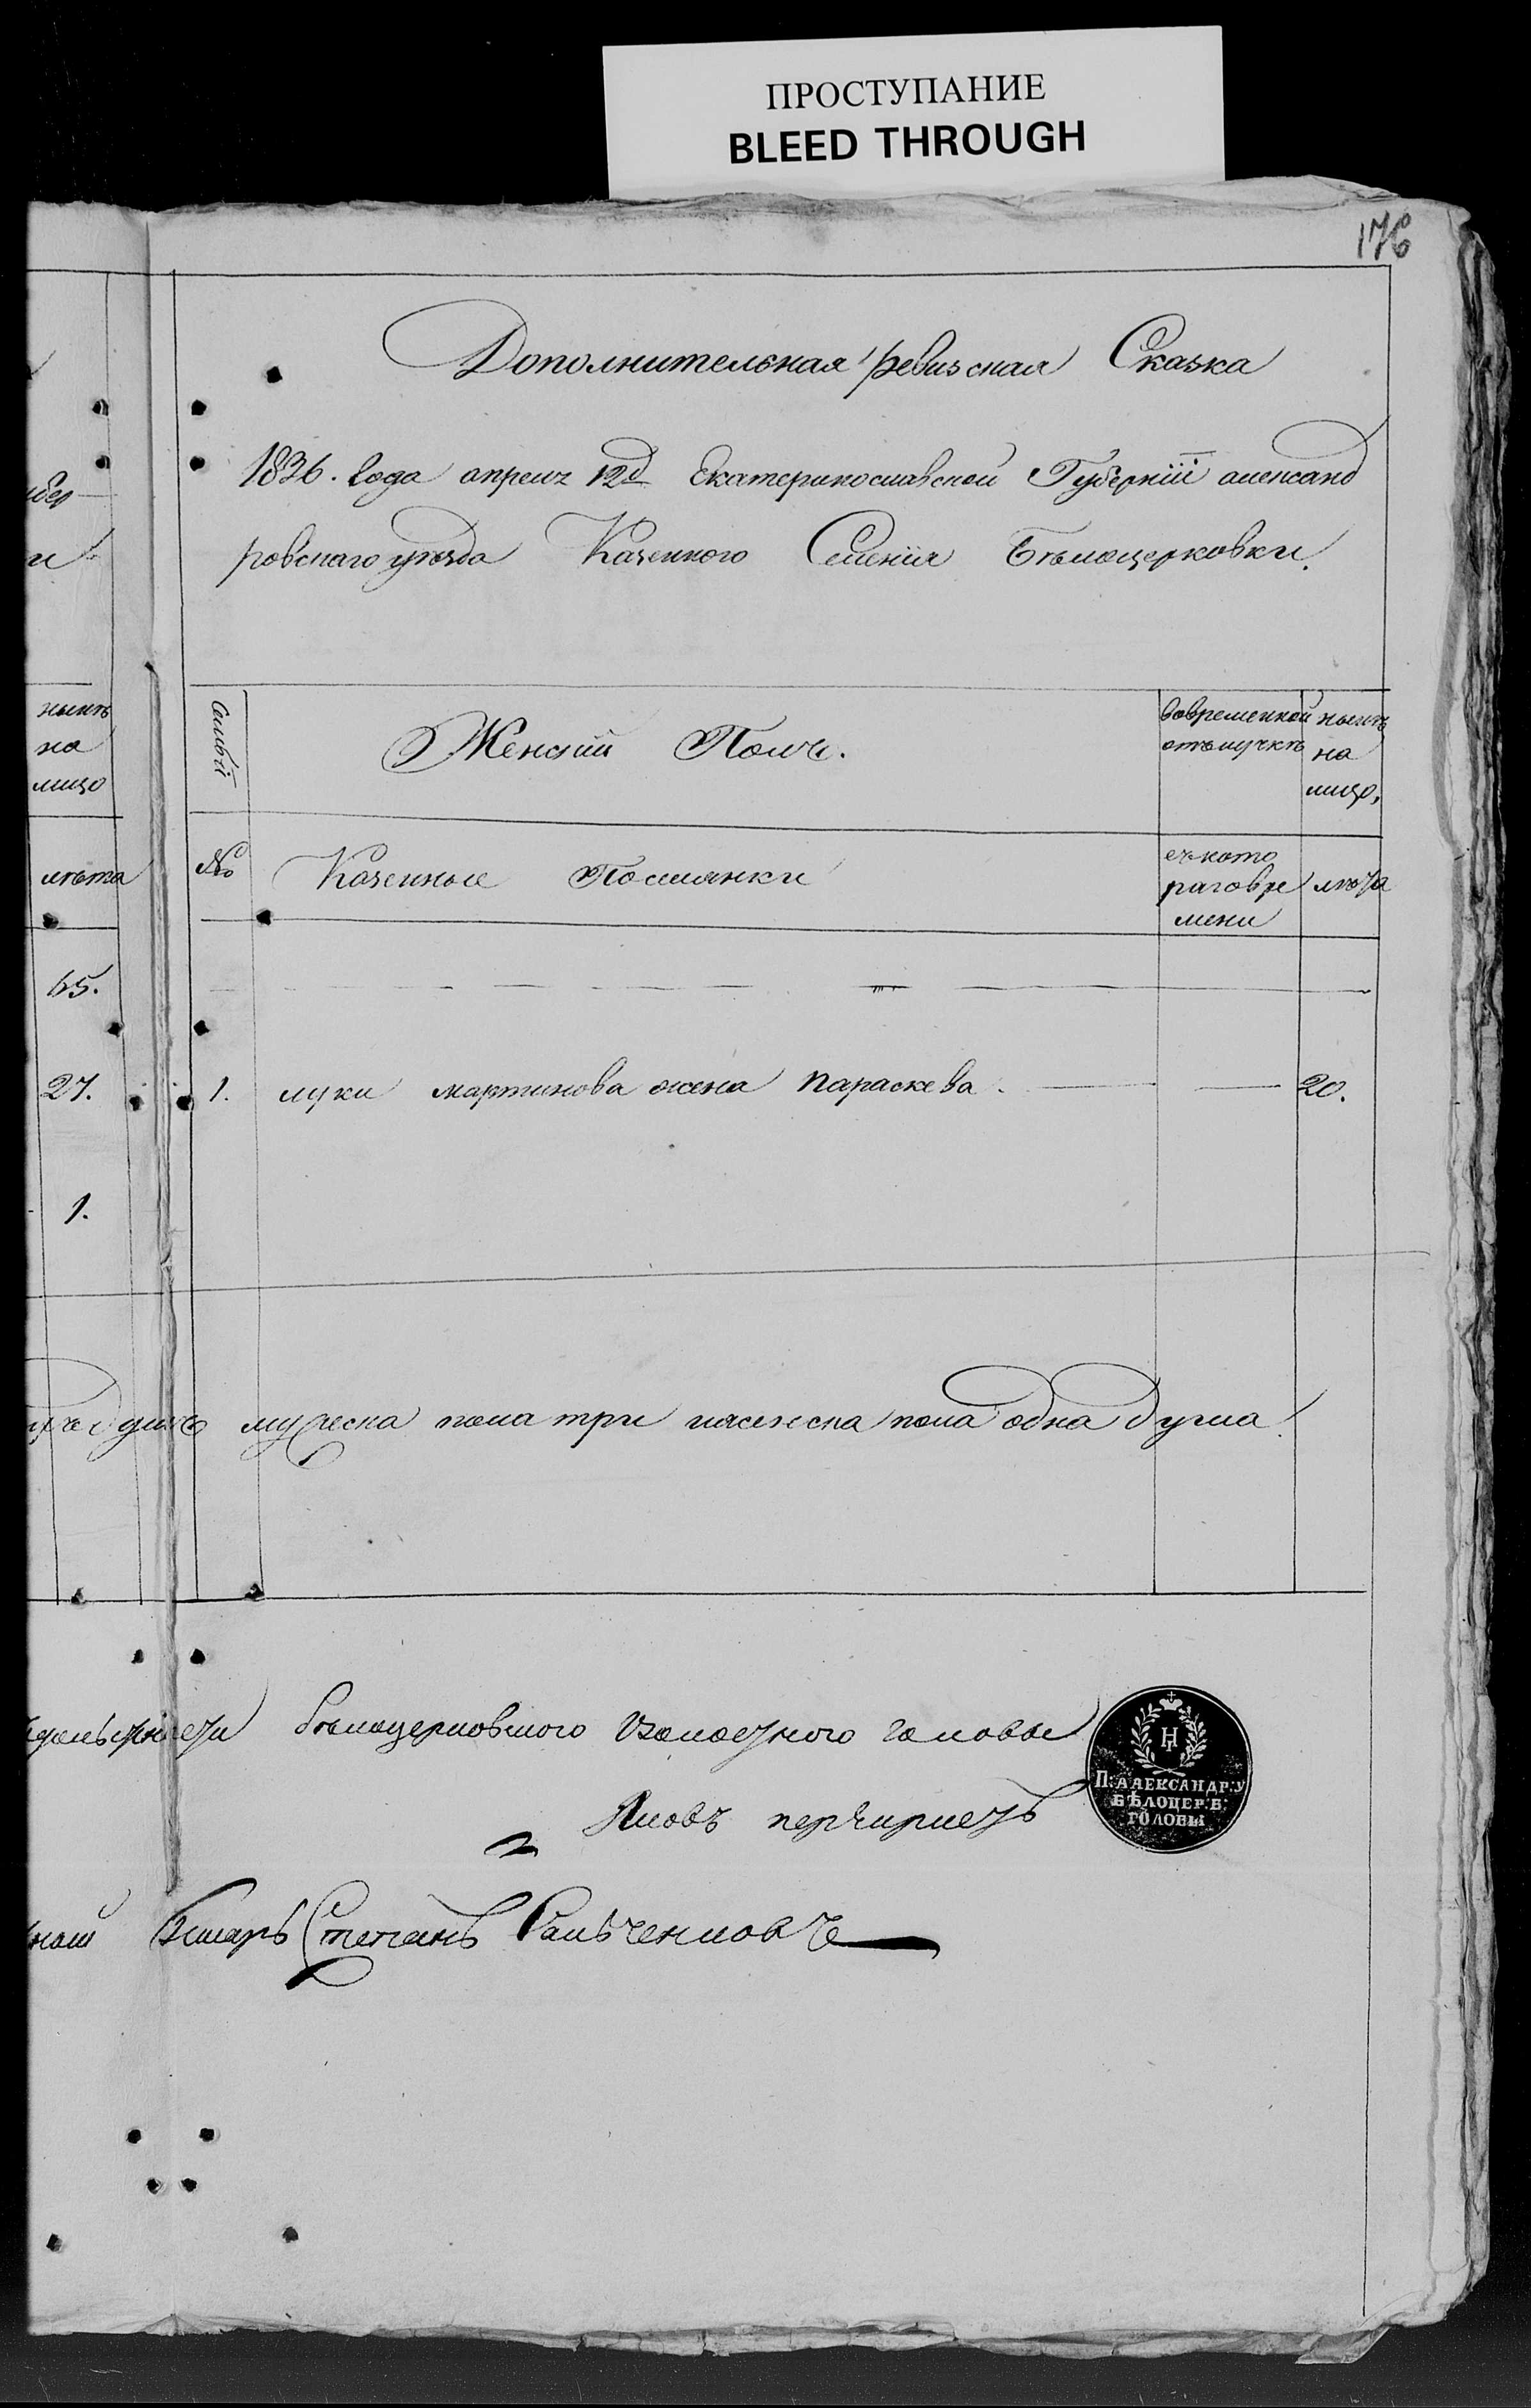 ПРОСТУПАНИЕ
BLEED THROUGH
176
Дополнительная ревизская Сказка
1836. года апреля 12д Екатеринославской Губернiи александ
ровскаго уѣзда Казенного Селенiя Бѣлоцерковки.
ныне
на
лицо
лѣта
65.
27.
1.
Семьи
Женский Полъ.
вовременной
отълучкѣ
нынѣ
на
лицо,
№
Казенные Поселянки
съ кото
раговре
мени
лѣта
1. луки мартинова жена параскева. 20.
мужеска пола три и женска пола одна душа.
бѣлоцерковского Волостного головы
Яковъ
Писарь Степанъ
Н I
П: АЛЕКСАНДР: У
БѢЛОЦЕР: В:
ГОЛОВЫ